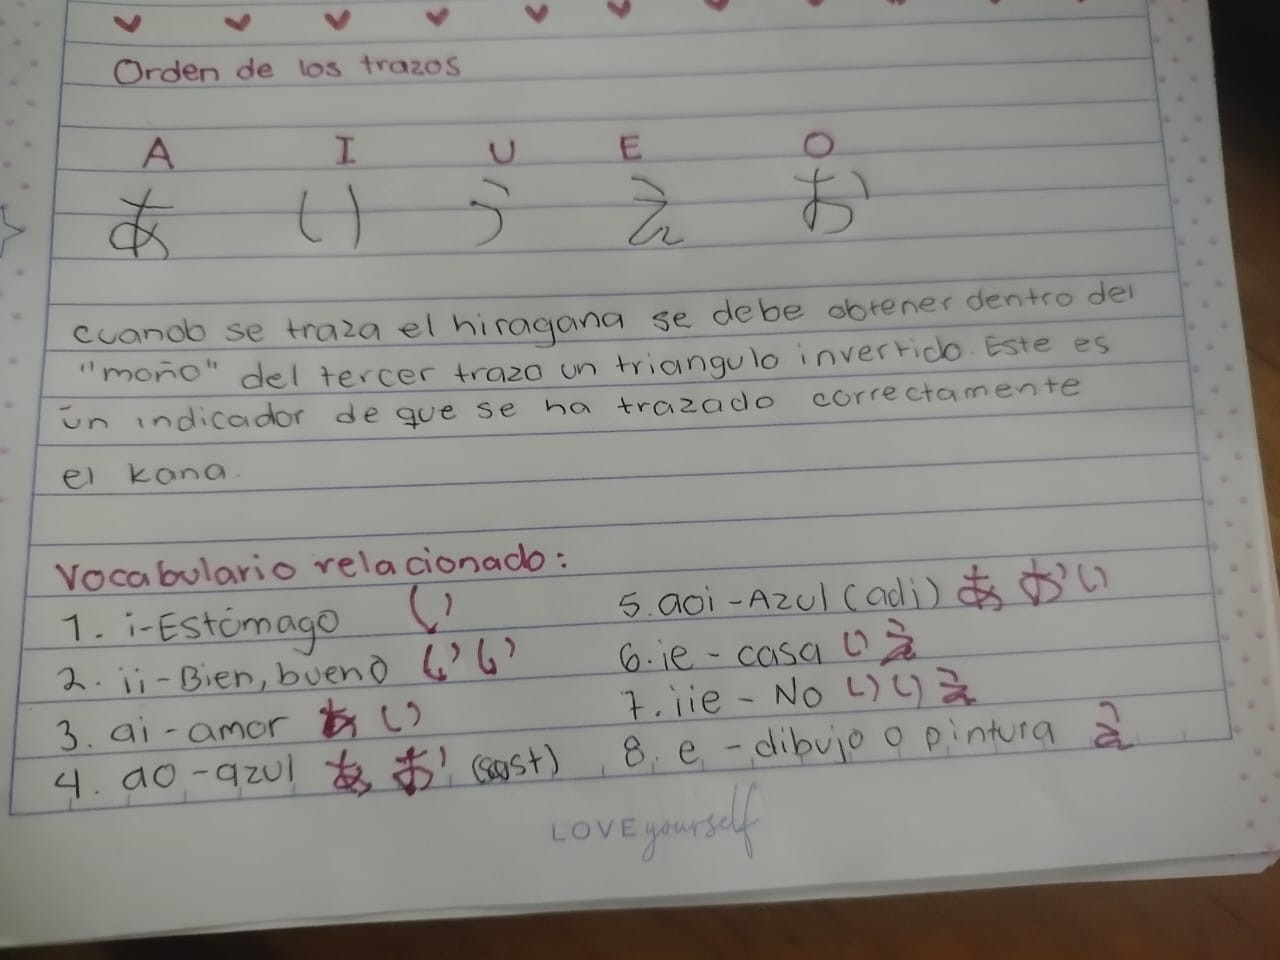 Orden de los trazos
A I U E O
あ い う え お
cuando se traza el hiragana se debe obtener dentro del
"moño" del tercer trazo un triangulo invertido. Este es
un indicador de que se ha trazado correctamente
el kana.
Vocabulario relacionado:
1. i-Estómago い
2. ii-Bien, bueno いい
3. ai-amor あい
4. ao-azul あお (sust)
5. aoi-Azul (adj) あおい
6. ie-casa いえ
7. iie-No いいえ
8. e-dibujo o pintura え
LOVE yourself